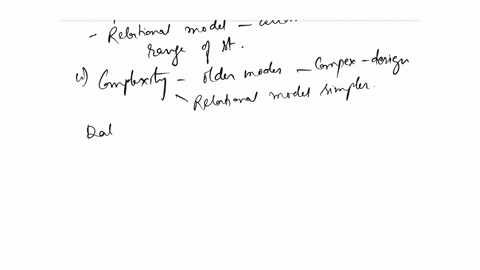 - Relational model —
range of st.
Complexity - older modes - Compex - design
Relational model simpler.
Dal